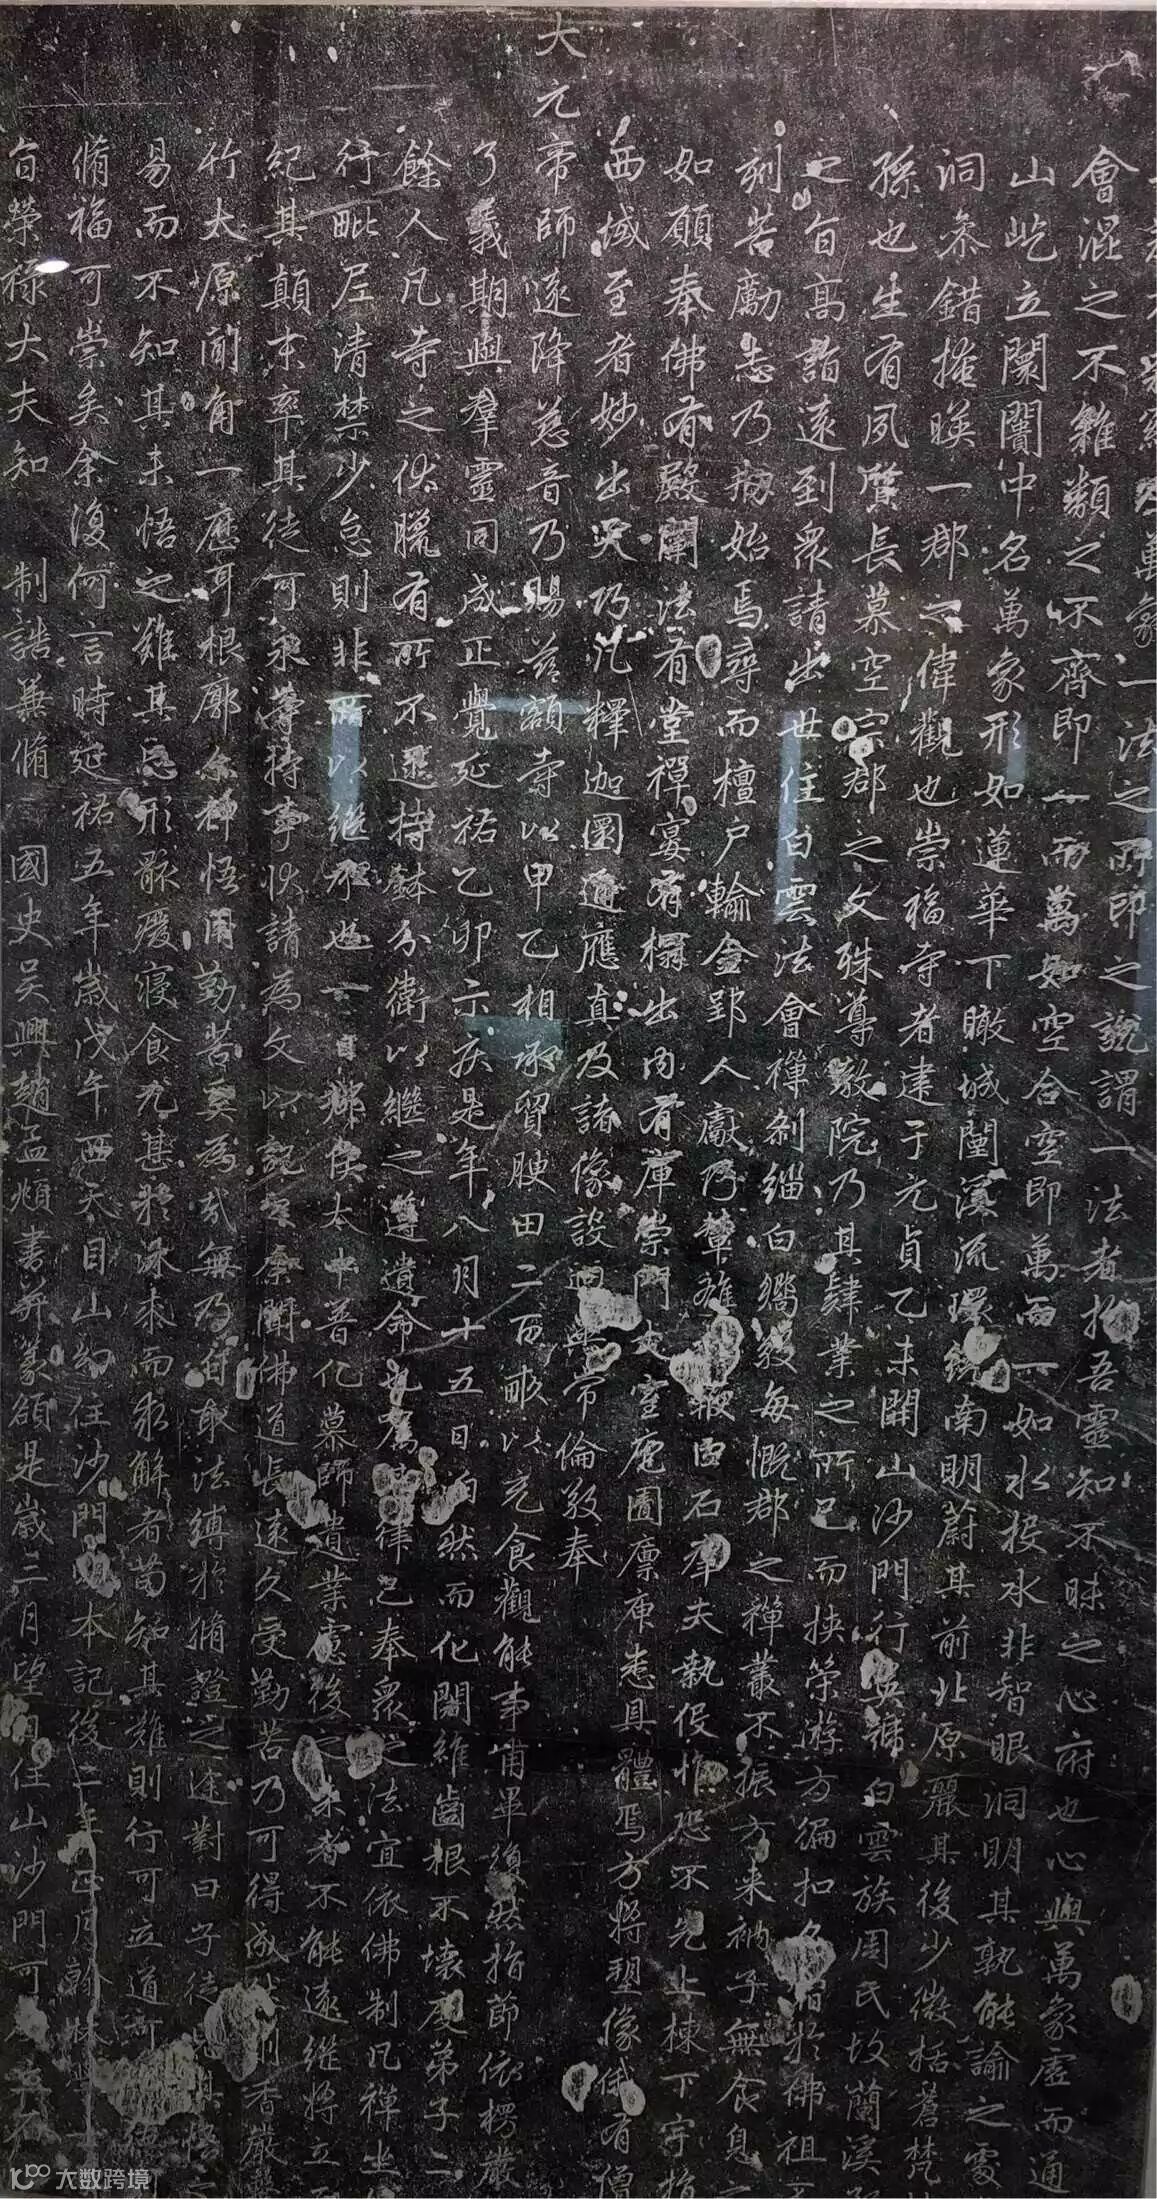 萬象一法之所印之說謂一法者指吾靈知不昧之心府也心與萬象虛而通
會混之不雜類之不齊即一而萬如空合空即萬而一如水投水非智眼洞明其孰能諭之處
山屹立闤闠中名萬象形如蓮華下瞰城闉溪流環繞南明蔚其前北原麗其後少微括蒼梵
洞參錯掩暎一郡之偉觀也崇福寺者建于元貞乙未開山沙門行英號白雲族周民坟蘭溪
孫也生有夙質長慕空宗郡之文殊尊教院乃其肄業之所已而挟筞游方徧扣名宿於佛祖
之旨高詣遠到衆請出世住白雲法會禪刹緇白嚮毅每慨郡之禪叢不振方来衲子無食息之
刻苦勵志乃刱始焉尋而檀户輸金郢人獻乃輦巨石牽夫執伇惟恐不先上棟下宇指
如願奉佛有殿闡法有堂禪宴有榻出内有庫崇門丈室庖圊廪庾悉具體焉方將塑像俄有僧
西域至者妙出天乃凡釋迦圓通應真及諸像設逈與常倫敬奉
大元帝師遂降慈音乃賜茲額寺以甲乙相承貿腴田二百畝以充食觀能事甫畢湏然指節依楞嚴
了義期與羣靈同成正覺延祐乙卯示疾是年八月十五日泊然而化闍維齒根不壞度弟子二
餘人凡寺之伏臘有所不逮持鉢分衛以繼之遵遺命也為律己奉衆之法宜依佛制凡禪坐
行毗尼清禁少怠則非所以繼承也一日鄉侯太中普化慕師遺業慮後之来者不能遠繼將立
紀其顛末率其徒可永等持事狀請為文以記之余聞佛道長遠久受勤苦乃可得成然則香嚴
竹大原聞角一歷耳根廓尔神悟用勤苦奚為哉無乃自取法縛於脩證之迹對曰子徒見其悟
易而不知其未悟之難其忘形骸癈寝食尤甚於冰蘖而求解者苟知其難則行可立道可
脩福可崇矣余復何言時延祐五年歲戊午西天目山幻住沙門明本記後二年正月翰林學
旨榮禄大夫知制誥兼脩國史吴興趙孟頫書并篆額是歲三月望日住山沙門可
大数跨境